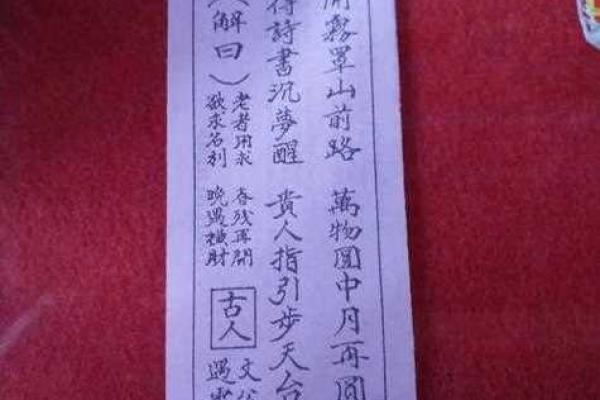 開霧罩山前路 萬物圓中月再圓
待詩書沉夢醒 貴人指引步天台
解曰) 老者用求 春殘再開
欲求名利 晚遇橫財
古人
文
遇